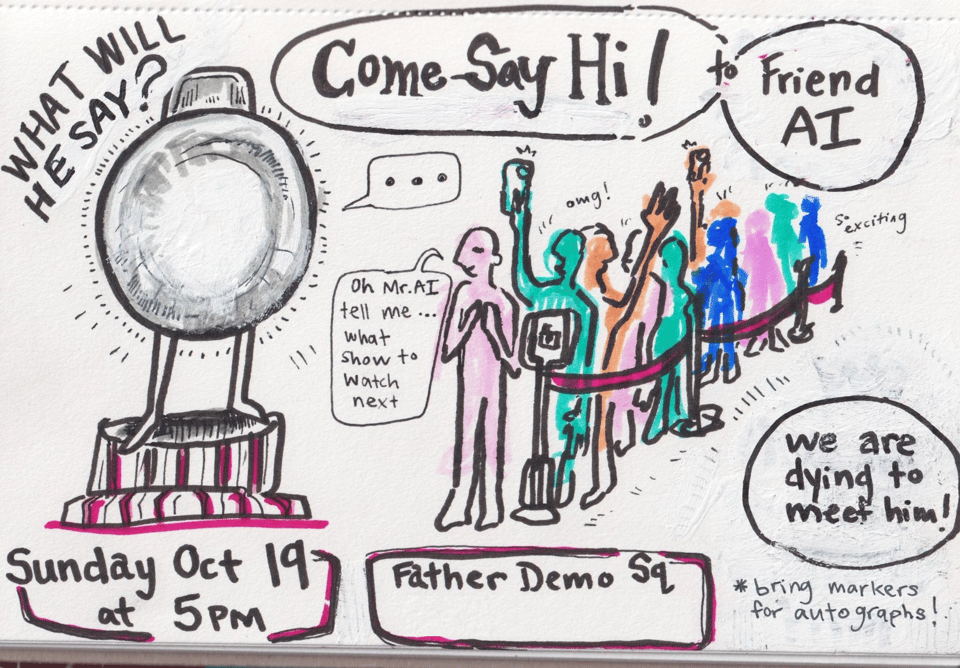 WHAT WILL
HE SAY?
Come Say Hi!
to
Friend
AI
...
omg!
so
exciting
Oh Mr.AI
tell me...
what
show to
watch
next
we are
dying to
meet him!
Sunday Oct 19
at 5PM
Father Demo Sq
*bring markers
for autographs!